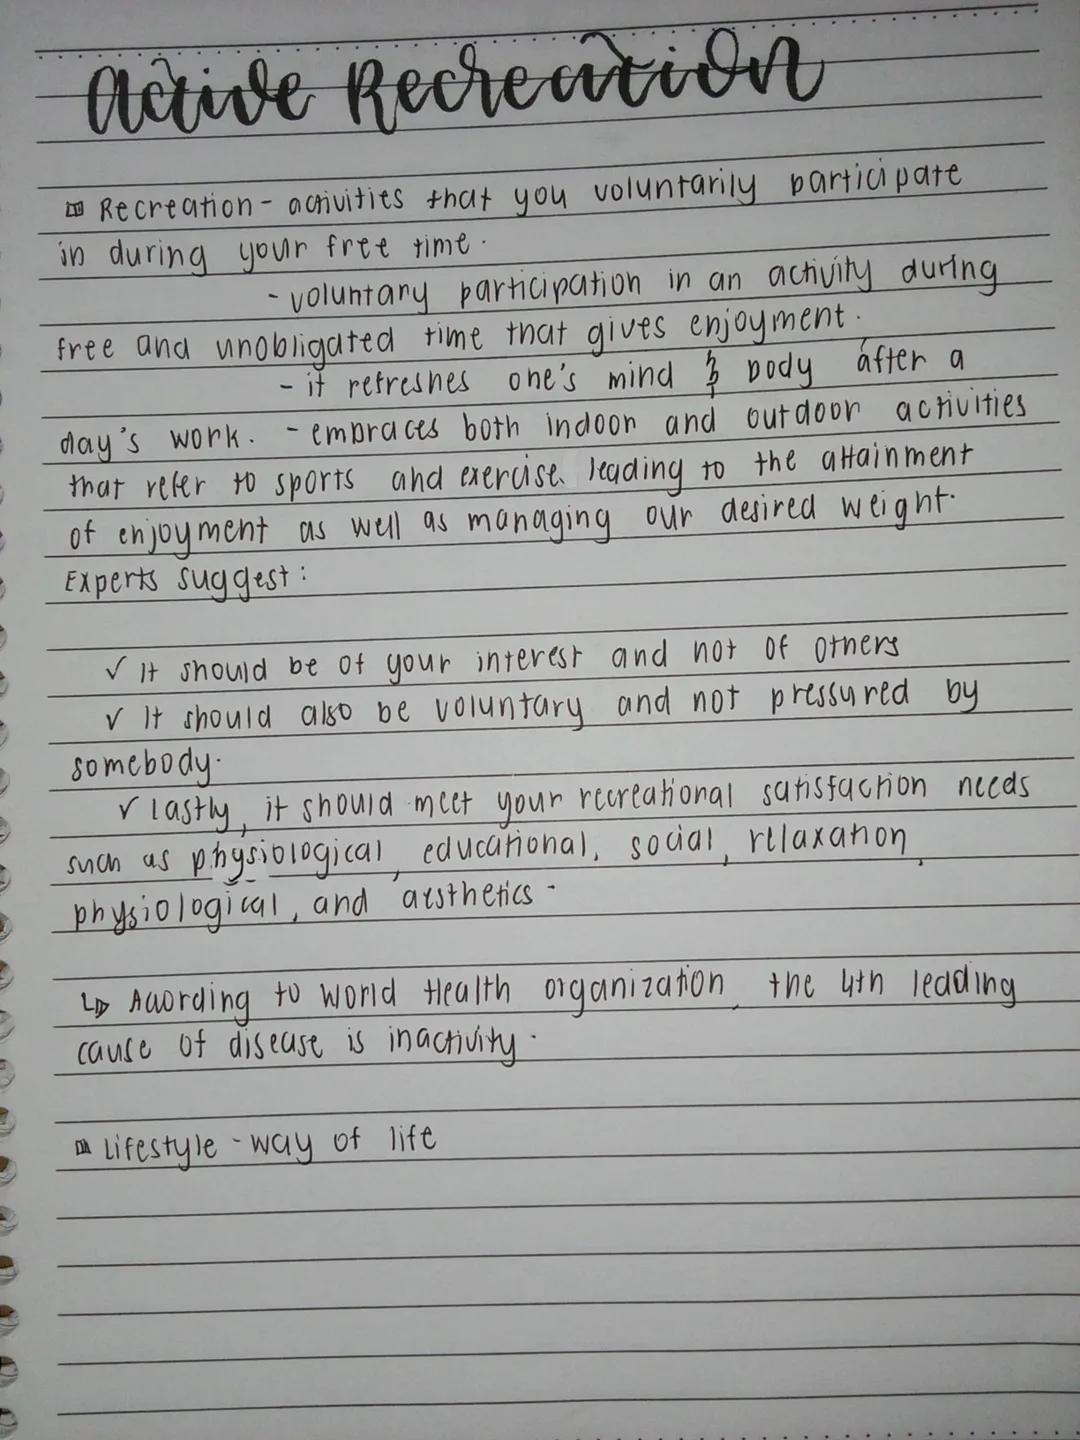 Active Recreation
Recreation - activities that you voluntarily participate
in during your free time.
- voluntary participation in an activity during
free and unobligated time that gives enjoyment.
- it refreshes one's mind & body after a
day's work. - embraces both indoor and outdoor activities
that refer to sports and exercise leading to the attainment
of enjoyment as well as managing our desired weight.
Experts suggest:
✓ It should be of your interest and not of others
✓ It should also be voluntary and not pressured by
somebody.
✓ lastly, it should meet your recreational satisfaction needs
such as physiological, educational, social, relaxation,
physiological, and aesthetics.
↳ According to World Health organization, the 4th leading
cause of disease is inactivity.
lifestyle - way of life